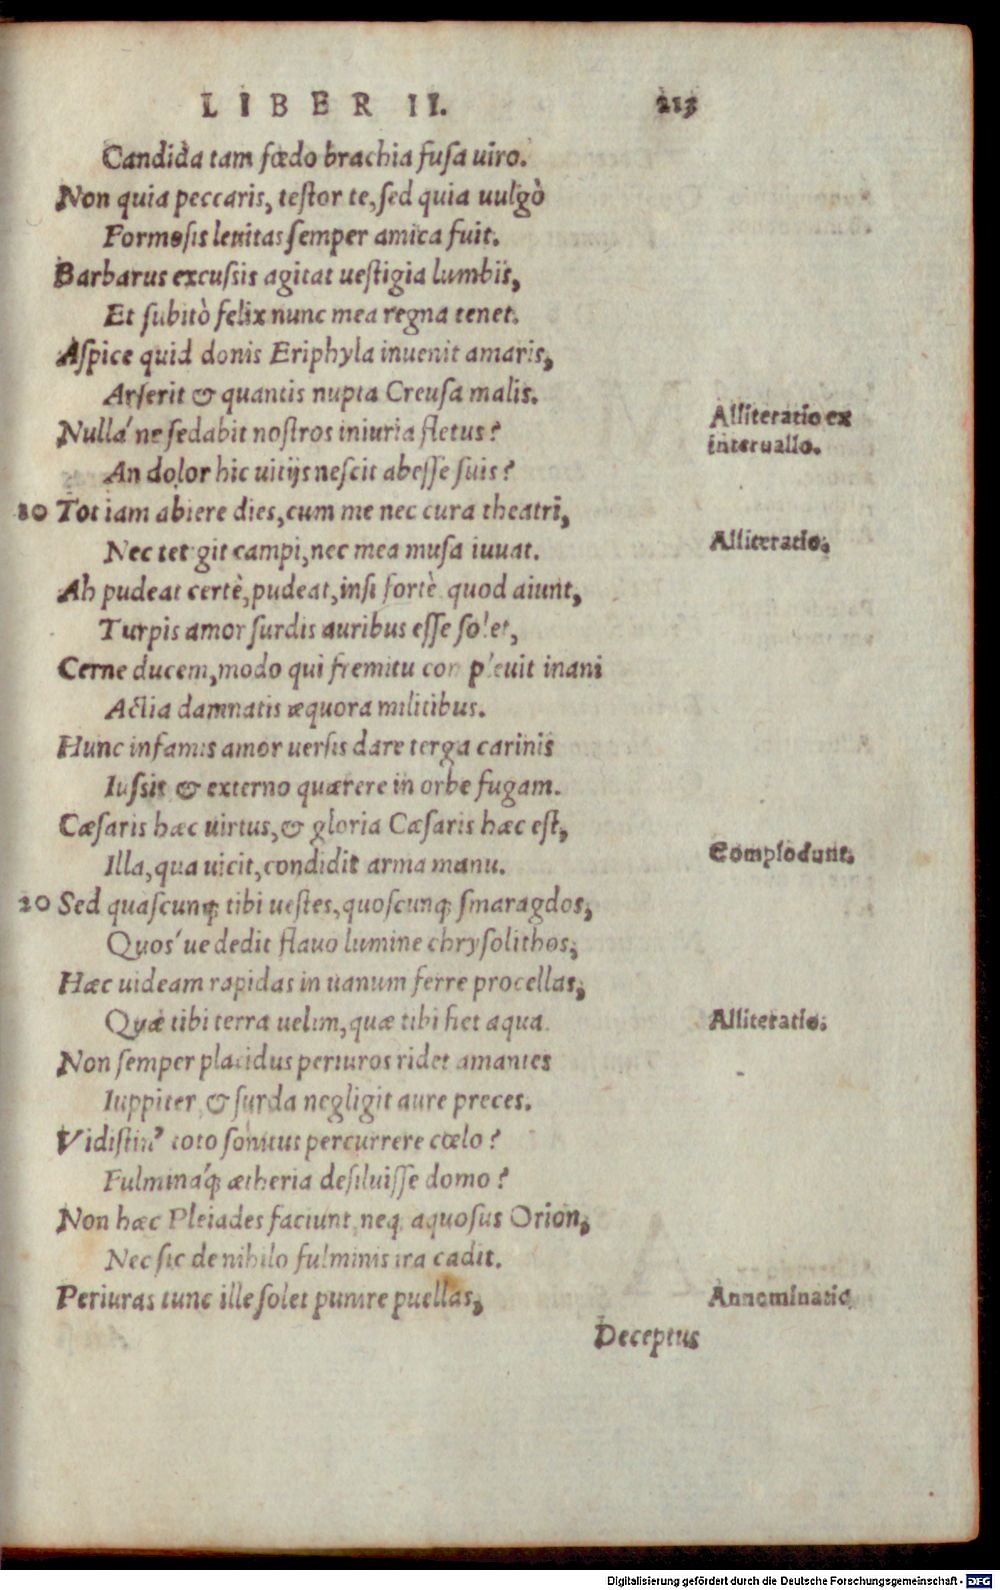 LIBER II. 213
Candida tam fœdo brachia fusa uiro.
Non quia peccaris, testor te, sed quia uulgò
Formosis leuitas semper amica fuit.
Barbarus excussis agitat uestigia lumbis,
Et subitò felix nunc mea regna tenet.
Aspice quid donis Eriphyla inuenit amaris,
Arserit & quantis nupta Creusa malis.
Nulla' ne sedabit nostros iniuria fletus?
Alliteratio ex
interuallo.
An dolor hic uitijs nescit abesse suis?
10 Tot iam abiere dies, cum me nec cura theatri,
Nec tetigit campi, nec mea musa iuuat.
Alliteratio.
Ah pudeat certè, pudeat, insi fortè quod aiunt,
Turpis amor surdis auribus esse solet,
Cerne ducem, modo qui fremitu compleuit inani
Actia damnatis æquora militibus.
Hunc infamis amor uersis dare terga carinis
Iussit & externo quærere in orbe fugam.
Cæsaris hæc uirtus, & gloria Cæsaris hæc est,
Illa, qua uicit, condidit arma manu.
Complodunt.
20 Sed quascunq; tibi uestes, quoscunq; smaragdos,
Quos' ue dedit flauo lumine chrysolithos,
Hæc uideam rapidas in uanum ferre procellas,
Quæ tibi terra uelim, quæ tibi fiet aqua.
Alliteratio.
Non semper placidus periuros ridet amantes
Iuppiter, & surda negligit aure preces.
Vidistin' toto sonitus percurrere cœlo?
Fulmina'q; ætheria desiluisse domo?
Non hæc Pleiades faciunt, neq; aquosus Orion,
Nec sic de nihilo fulminis ira cadit.
Periuras tunc ille solet punire puellas,
Annominatio
Deceptus
Digitalisierung gefördert durch die Deutsche Forschungsgemeinschaft - DFG